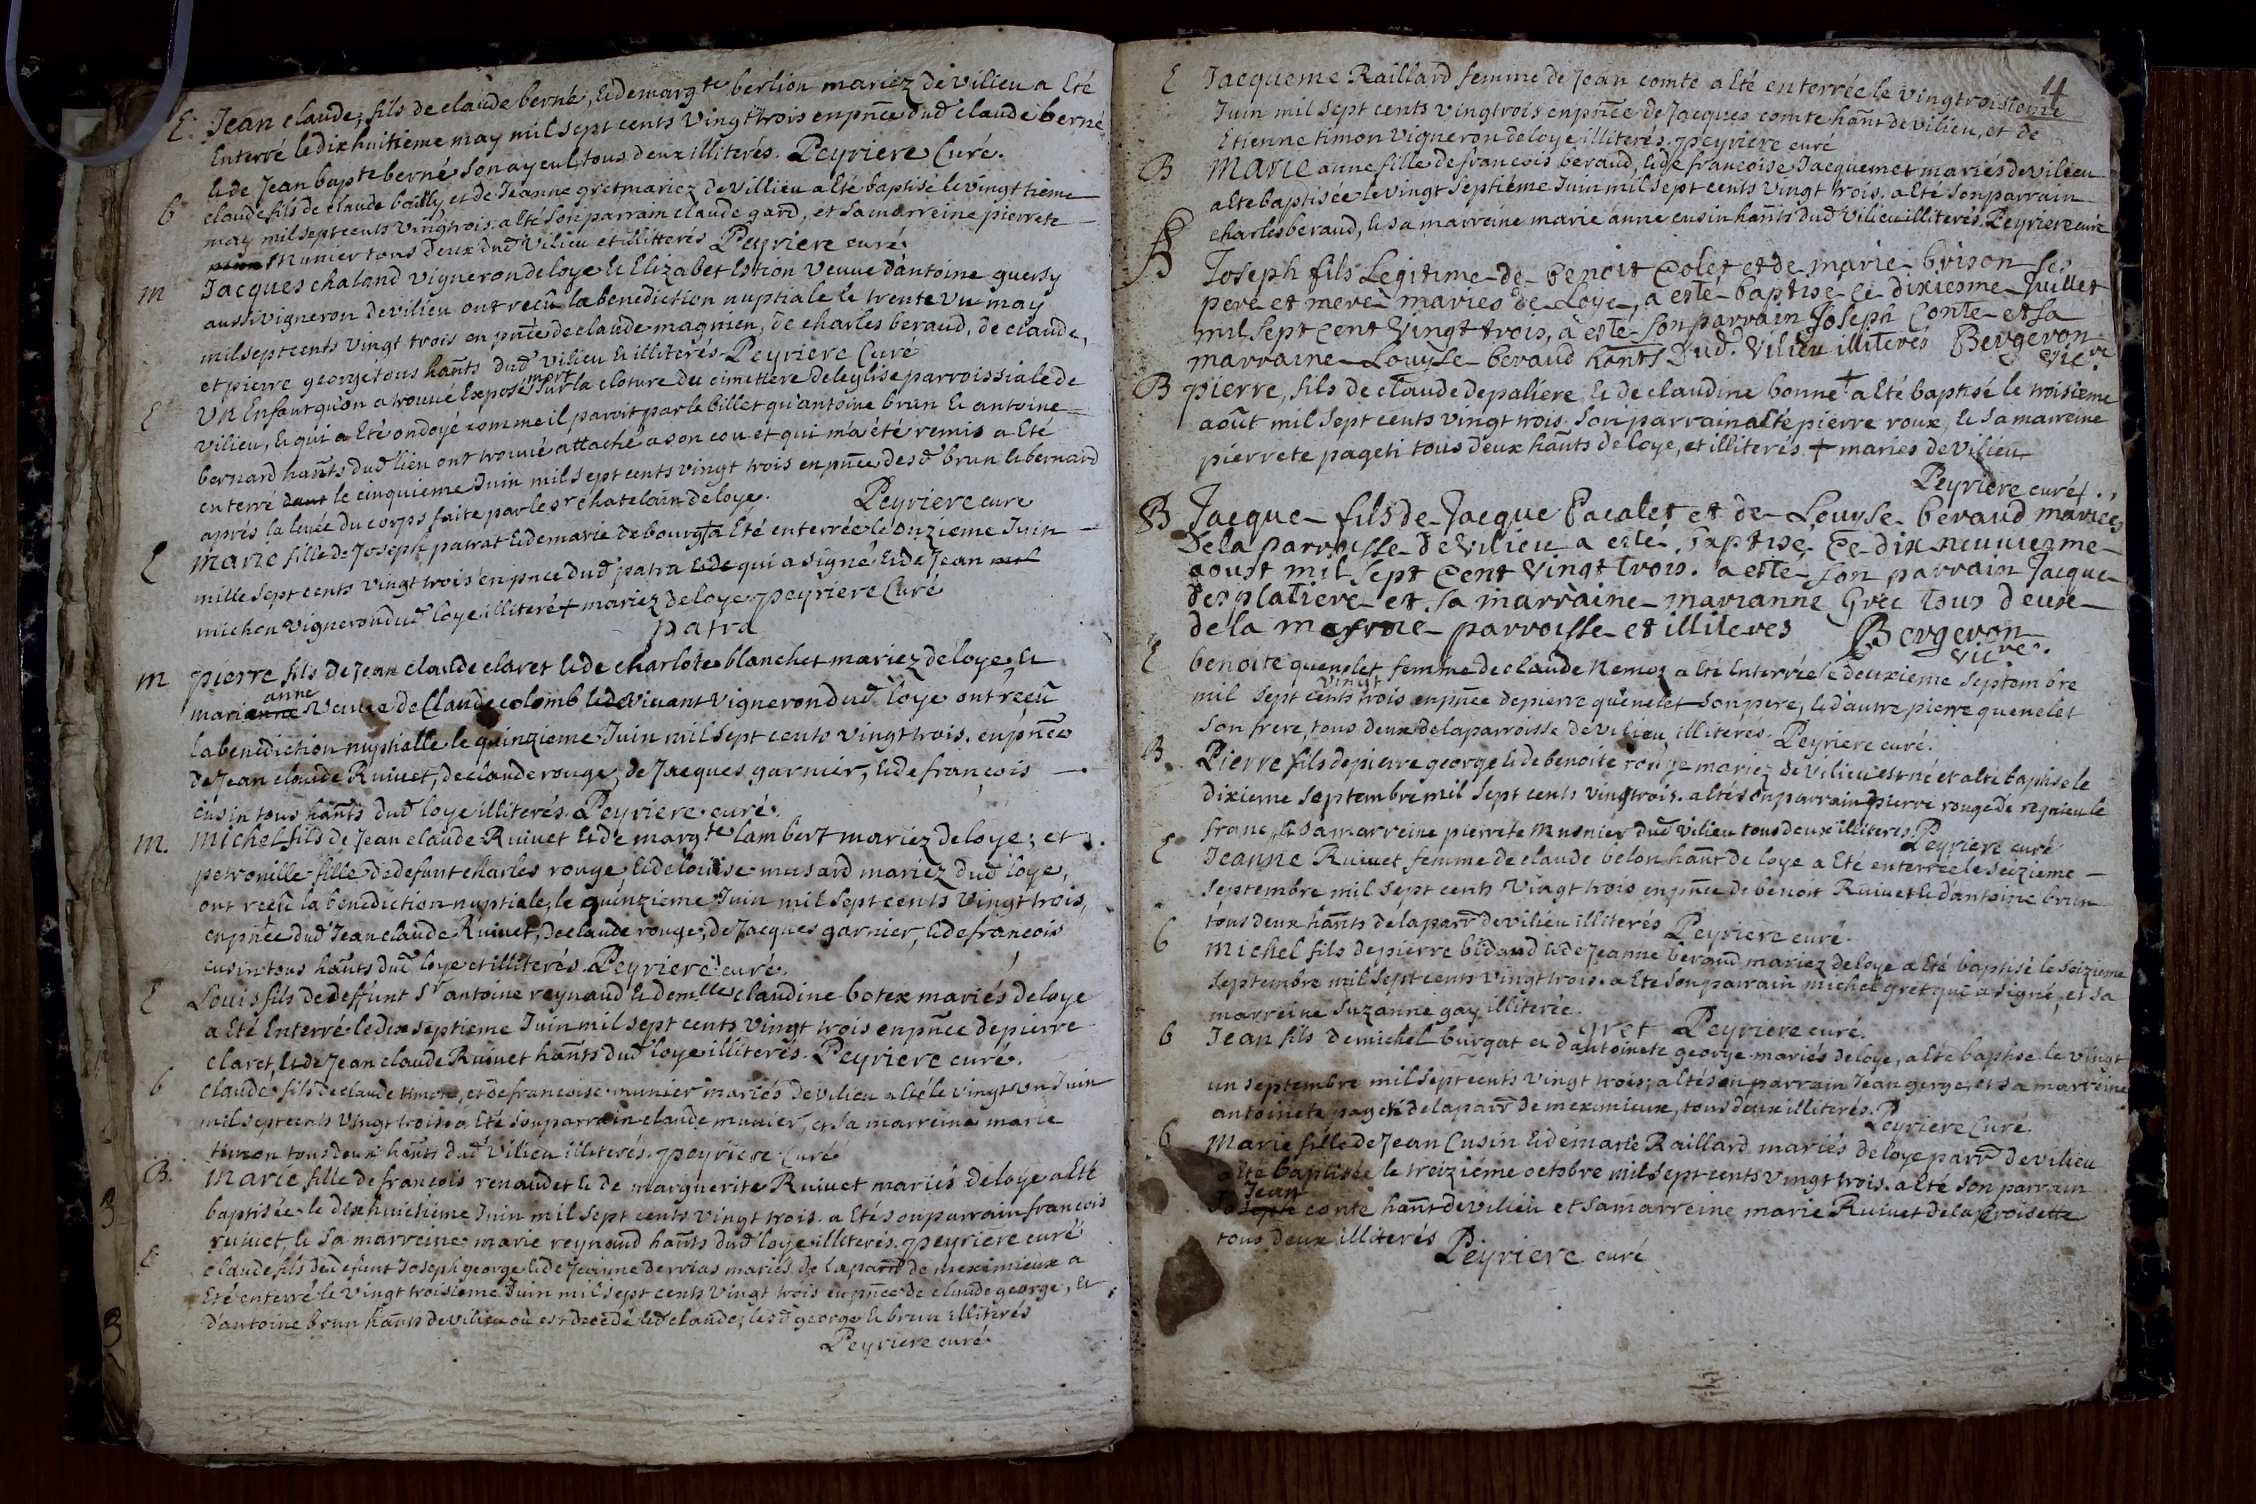 E. Jean claude, fils de claude berné, & de margte berlion mariez de vilieu a Eté
Enterré le dix huitieme may mil sept cents vingt trois en pnce dud claude berné
& de Jean bapte berné son ayeul tous deux illiterés. Peyriere Curé.
b claude fils de claude bailly et de Jeanne gret mariez de villieu a Eté baptisé le vingttieme
may mil sept cents vingtrois. a Eté son parrain claude gard, et sa marreine pierrete
munier tous deux dud vilieu et illitterés Peyriere curé.
m Jacques chaland vigneron de loye & Elizabet Estion veuve d'antoine guersy
aussi vigneron de vilieu ont reçû la benediction nuptiale le trente vn may
mil sept cents vingt trois en pnce de claude magnien, de charles beraud, de claude,
et pierre george tous hants dud vilieu & illiterés Peyriere Curé
E Un Enfant qu'on a trouué Exposé mort sur la cloture du cimetiere de leglise parroissiale de
vilieu, & qui a Eté ondoyé comme il paroit par le billet qu'antoine brun & antoine
bernard hants dud lieu ont trouvé attaché a son cou et qui m'a été remis a Eté
enterré le cinquieme Juin mil sept cents vingt trois en pnce desd brun & bernard
aprés la levée du corps faite par le sr chatelain de loye. Peyriere cure
E Marie fille de Joseph patrat & de marie debourg + a Eté enterrée le onzieme Juin
mille sept cents vingt trois en pnce dud patra qui a signé & de Jean
michon vigneron dud loye illiteré + mariez de loye Peyriere Curé
patra
m pierre fils de Jean claude claret & de charlote blanchet mariez de loye &
marianne anne veuve de Claude colomb vivant vigneron dud loye ont reçû
la benediction nuptialle le quinzieme Juin mil sept cents vingt trois. en pnce
de Jean claude Ruivet, de claude rouge, de Jacques garnier, & de françois
cusin tous hants dud loye illiterés Peyriere curé.
m. Michel fils de Jean claude Ruivet & de margte lambert mariez de loye; et
petronille fille de defunt charles rouge, & de louise musard mariez dud loye,
ont reçû la benediction nuptiale, le quinzieme Juin mil sept cents vingt trois,
en pnce dud Jean claude Ruivet, de claude rouge, de Jacques garnier, & de francois
cusin tous hants dud loye et illiterés Peyriere curé.
E Louis fils de deffunt Sr antoine reynaud & demlle claudine botex mariés de loye
a Eté Enterré le dix septieme Juin mil sept cents vingt trois en pnce de pierre
claret, & de Jean claude Ruivet hants dud loye illiterés. Peyriere curé.
b claude fils de claude timon, et de francoise munier mariés de vilieu a Eté le vingt vn Juin
mil sept cents vingt trois. a Eté son parrain claude munier, et sa marreine marie
timon tous deux hants dud vilieu illiterés. peyriere Curé
B. Marie fille de françois renaudet & de marguerite Ruivet mariés de loye a Eté
baptisée le dix huictieme Juin mil sept cents vingt trois. a Eté son parrain francois
ruivet, & sa marreine marie reynaud hants dud loye illiterés. peyriere curé
E claude fils de defunt Joseph george & de Jeanne dervias mariés de la parr de meximieux a
Eté enterré le vingt troisieme Juin mil sept cents vingt trois en pnce de claude george, &
d'antoine brun hants de vilieu où est decedé led claude; lesd george & brun illiterés
Peyriere curé.
14
E Jacqueme Raillard femme de Jean comte a Eté enterrée le vingtroisieme
Juin mil sept cents vingtrois en pnce de Jacques comte hant de vilieu, et de
Etienne timon vigneron de loye illiterés. peyriere curé
B Marie anne fille de francois beraud, & de francoise Jacquemet mariés de vilieu
a Eté baptisée le vingt septieme Juin mil sept cents vingt trois. a Eté son parrain
charles beraud, & sa marreine marie anne cusin hants dud vilieu illiterés. Peyriere curé
B Joseph fils Legitime de benoit Colet et de marie brison ses
pere et mere mariés de Loye, a esté baptisé ce dixiesme Juillet
mil sept cent vingt trois, a esté son parrain Joseph Conte et sa
marraine Louyse beraud hants dud. vilieu illiterés Bergeron
vicre
B pierre, fils de claude depaliere, & de claudine bonne + a Eté baptisé le troisieme
août mil sept cents vingt trois. son parrain a Eté pierre roux, & sa marreine
pierrete pageti tous deux hants de loye, et illiterés. + mariés de vilieu
Peyriere curé
B Jacque fils de Jacque Pacalet et de Louyse beraud mariés
de la parroisse de vilieu a esté baptisé ce dix neuviesme
aoust mil sept cent vingt trois. a esté son parrain Jacque
desplatiere et sa marraine marianne Gret tous deux
de la mesme parroisse et illiteres Bergeron
vicre.
E benoite quenelet femme de claude Nemoz a Eté Enterrée le deuxieme septembre
mil sept cents vingt trois en pnce de pierre quenelet son pere, & d'autre pierre quenelet
son frere, tous deux de la parroisse de vilieu, illiterés. Peyriere curé.
B. Pierre fils de pierre george & de benoite rouge mariez de vilieu est né et a Eté baptisé le
dixieme septembre mil sept cents vingtrois. a Eté son parrain pierre rouge de rignieu le
franc, & sa marreine pierrete munier dud vilieu tous deux illiteres. Peyriere curé
E Jeanne Ruivet femme de claude belon hant de loye a Eté enterrée le seizieme
septembre mil sept cents vingt trois en pnce de benoit Ruivet & d'antoine brun
tous deux hants de la parr de vilieu illiterés Peyriere curé.
b Michel fils de pierre bidaud & de Jeanne beraud mariez de loye a Eté baptisé le seizieme
septembre mil sept cents vingt trois. a Eté son parrain michel gret qui a signé, et sa
marreine suzanne gay illiterée.
gret Peyriere curé.
b Jean fils de michel burgat et d'antoinete george mariés de loye, a Eté baptisé le vingt
un septembre mil sept cents vingt trois; a Eté son parrain Jean gerge, et sa marreine
antoinete pageti de la parr de meximieux, tous deux illiterés. Peyriere Curé.
b Marie fille de Jean Cusin & de marie Raillard mariés de loye parr de vilieu
a Eté baptisée le treizième octobre mil sept cents vingt trois. a Eté son parrain
Jean
Joseph conte hant de vilieu et sa marreine marie Ruivet de la croisette
tous deux illiterés Peyriere curé